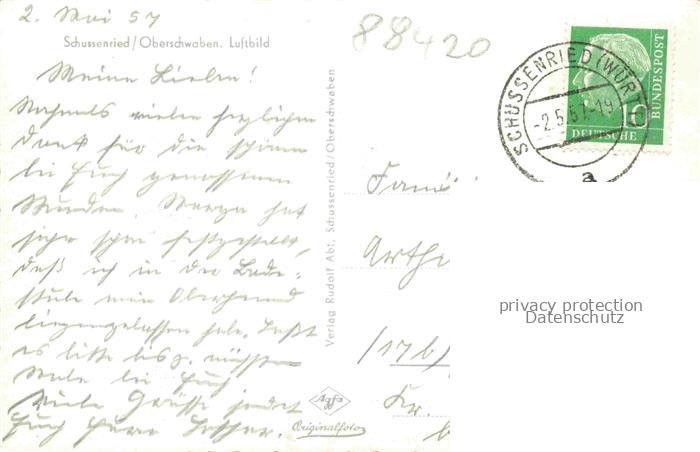 2. Mai 57
Schussenried/Oberschwaben. Luftbild
88420
Meine Lieben!
Nochmals vielen herzlichen
Dank für die schönen
bei Euch genossenen
Stunden. Marga hat
sicher schon festgestellt,
daß ich in der Bade-
stube mein Oberhemd
liegengelassen habe. Laßt
es bitte bis z. nächsten
Male bei Euch
Viele Grüße sendet
Euch Euer
Verlag Rudolf Abt, Schussenried/Oberschwaben
Agfa
Originalfoto
Fami
Arth
(17b)
Kr.
SCHUSSENRIED (WÜRTT
-2.5.57.-19
a
10
DEUTSCHE
BUNDESPOST
privacy protection
Datenschutz